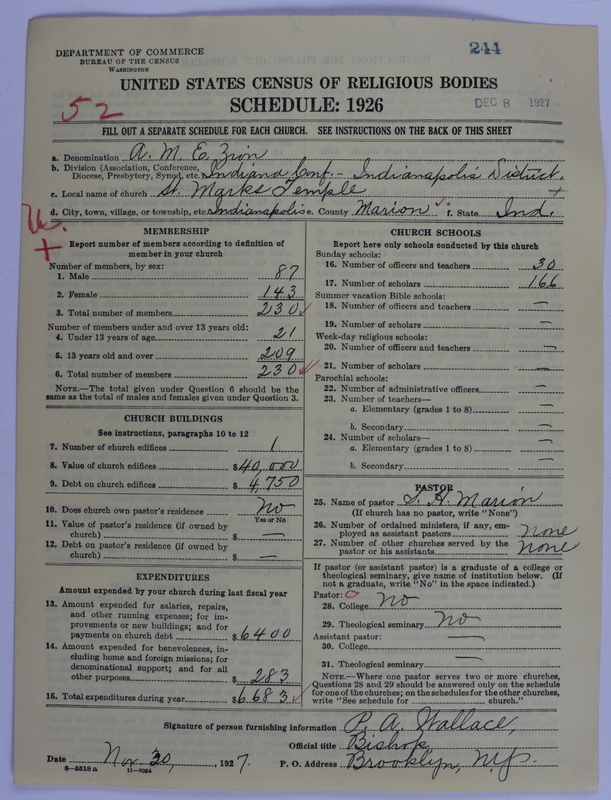 DEPARTMENT OF COMMERCE
BUREAU OF THE CENSUS
WASHINGTON
244
UNITED STATES CENSUS OF RELIGIOUS BODIES
SCHEDULE: 1926
52
DEC 8 1927
FILL OUT A SEPARATE SCHEDULE FOR EACH CHURCH. SEE INSTRUCTIONS ON THE BACK OF THIS SHEET
a. Denomination A. M. E. Zion
b. Division (Association, Conference, Diocese, Presbytery, Synod, etc. Indiana Conf. - Indianapolis District.
c. Local name of church St. Marks Temple +
d. City, town, village, or township, etc. Indianapolis e. County Marion f. State Ind.
+
MEMBERSHIP
Report number of members according to definition of
member in your church
Number of members, by sex:
1. Male 87
2. Female 143
3. Total number of members 230
Number of members under and over 13 years old:
4. Under 13 years of age 21
5. 13 years old and over 209
6. Total number of members 230
NOTE.—The total given under Question 6 should be the
same as the total of males and females given under Question 3.
CHURCH BUILDINGS
See instructions, paragraphs 10 to 12
7. Number of church edifices 1
8. Value of church edifices $40,000
9. Debt on church edifices $4,750
10. Does church own pastor's residence No
Yes or No
11. Value of pastor's residence (if owned by
church) $ —
12. Debt on pastor's residence (if owned by
church) $ —
EXPENDITURES
Amount expended by your church during last fiscal year
13. Amount expended for salaries, repairs,
and other running expenses; for im-
provements or new buildings; and for
payments on church debt $6400
14. Amount expended for benevolences, in-
cluding home and foreign missions; for
denominational support; and for all
other purposes $283
15. Total expenditures during year $6683
CHURCH SCHOOLS
Report here only schools conducted by this church
Sunday schools:
16. Number of officers and teachers 30
17. Number of scholars 166
Summer vacation Bible schools:
18. Number of officers and teachers —
19. Number of scholars —
Week-day religious schools:
20. Number of officers and teachers —
21. Number of scholars —
Parochial schools:
22. Number of administrative officers —
23. Number of teachers—
a. Elementary (grades 1 to 8) —
b. Secondary —
24. Number of scholars—
a. Elementary (grades 1 to 8) —
b. Secondary —
PASTOR
25. Name of pastor S. H. Marion
(If church has no pastor, write "None")
26. Number of ordained ministers, if any, em-
ployed as assistant pastors none
27. Number of other churches served by the
pastor or his assistants none
If pastor (or assistant pastor) is a graduate of a college or
theological seminary, give name of institution below. (If
not a graduate, write "No" in the space indicated.)
Pastor: O
28. College No
29. Theological seminary No
Assistant pastor:
30. College —
31. Theological seminary —
NOTE.—Where one pastor serves two or more churches,
Questions 28 and 29 should be answered only on the schedule
for one of the churches; on the schedules for the other churches,
write "See schedule for church."
Signature of person furnishing information P. A. Wallace,
Official title Bishop,
Date Nov. 30, 1927. P. O. Address Brooklyn, N.Y.
6—5518 a 11—9064